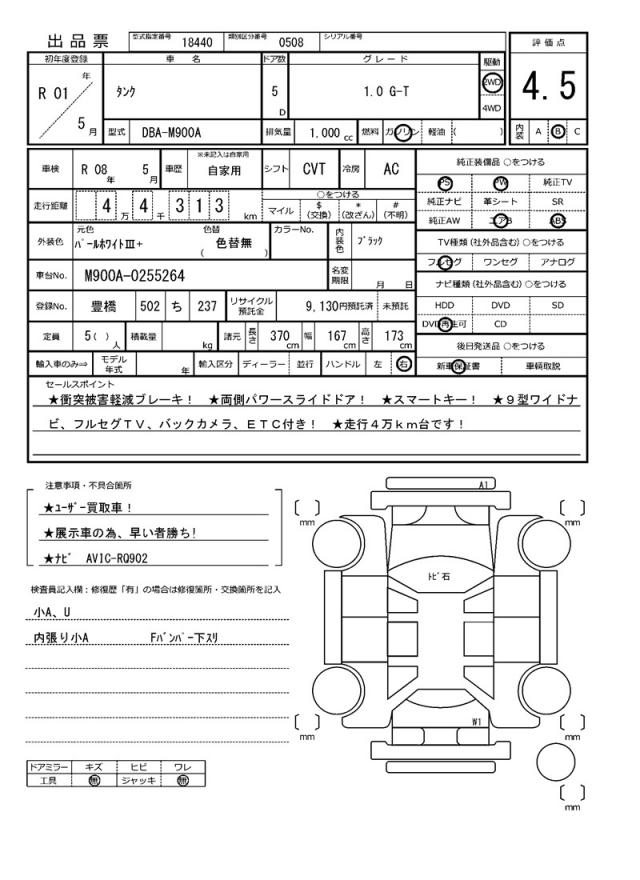 出品票 型式指定番号 18440 類別区分番号 0508 シリアル番号
初年度登録 車名 ドア数 グレード 駆動 評価点
R 01 年 5 月 タンク 5 D 1.0 G-T 2WD 4WD 4.5
型式 DBA-M900A 排気量 1.000 cc 燃料 ガソリン 軽油 ( ) 内装 A B C
車検 R 08 年 5 月 車歴 ※未記入は自家用 自家用 シフト CVT 冷房 AC
走行距離 4 万 4 千 3 1 3 km ○をつける マイル $ (交換) * (改ざん) # (不明)
外装色 元色 パールホワイトⅢ+ 色替 ( 色替無 ) カラーNo. 内装色 ブラック
車台No. M900A-0255264 名変期限 月 日
登録No. 豊橋 502 ち 237 リサイクル預託金 9,130円預託済 未預託
定員 5( ) 人 積載量 kg 諸元 長さ 370 cm 幅 167 cm 高さ 173 cm
輸入車のみ⇒ モデル年式 年 輸入区分 ディーラー 並行 ハンドル 左 右
純正装備品 ○をつける
PS PW 純正TV
純正ナビ 革シート SR
純正AW エアB ABS
TV種類 (社外品含む) ○をつける
フルセグ ワンセグ アナログ
ナビ種類 (社外品含む) ○をつける
HDD DVD SD
DVD再生可 CD
後日発送品 ○をつける
新車保証書 車輌取説
セールスポイント
★衝突被害軽減ブレーキ! ★両側パワースライドドア! ★スマートキー! ★9型ワイドナ
ビ、フルセグTV、バックカメラ、ETC付き! ★走行4万km台です!
注意事項・不具合箇所
★ユーザー買取車!
★展示車の為、早い者勝ち!
★ナビ AVIC-RQ902
検査員記入欄:修復歴「有」の場合は修復箇所・交換箇所を記入
小A、U
内張り小A Fバンパー下スリ
ドアミラー キズ ヒビ ワレ
工具 無 ジャッキ 無
A1
[ ] mm [ ] mm
トビ石
W1
[ ] mm [ ] mm
[ ] mm